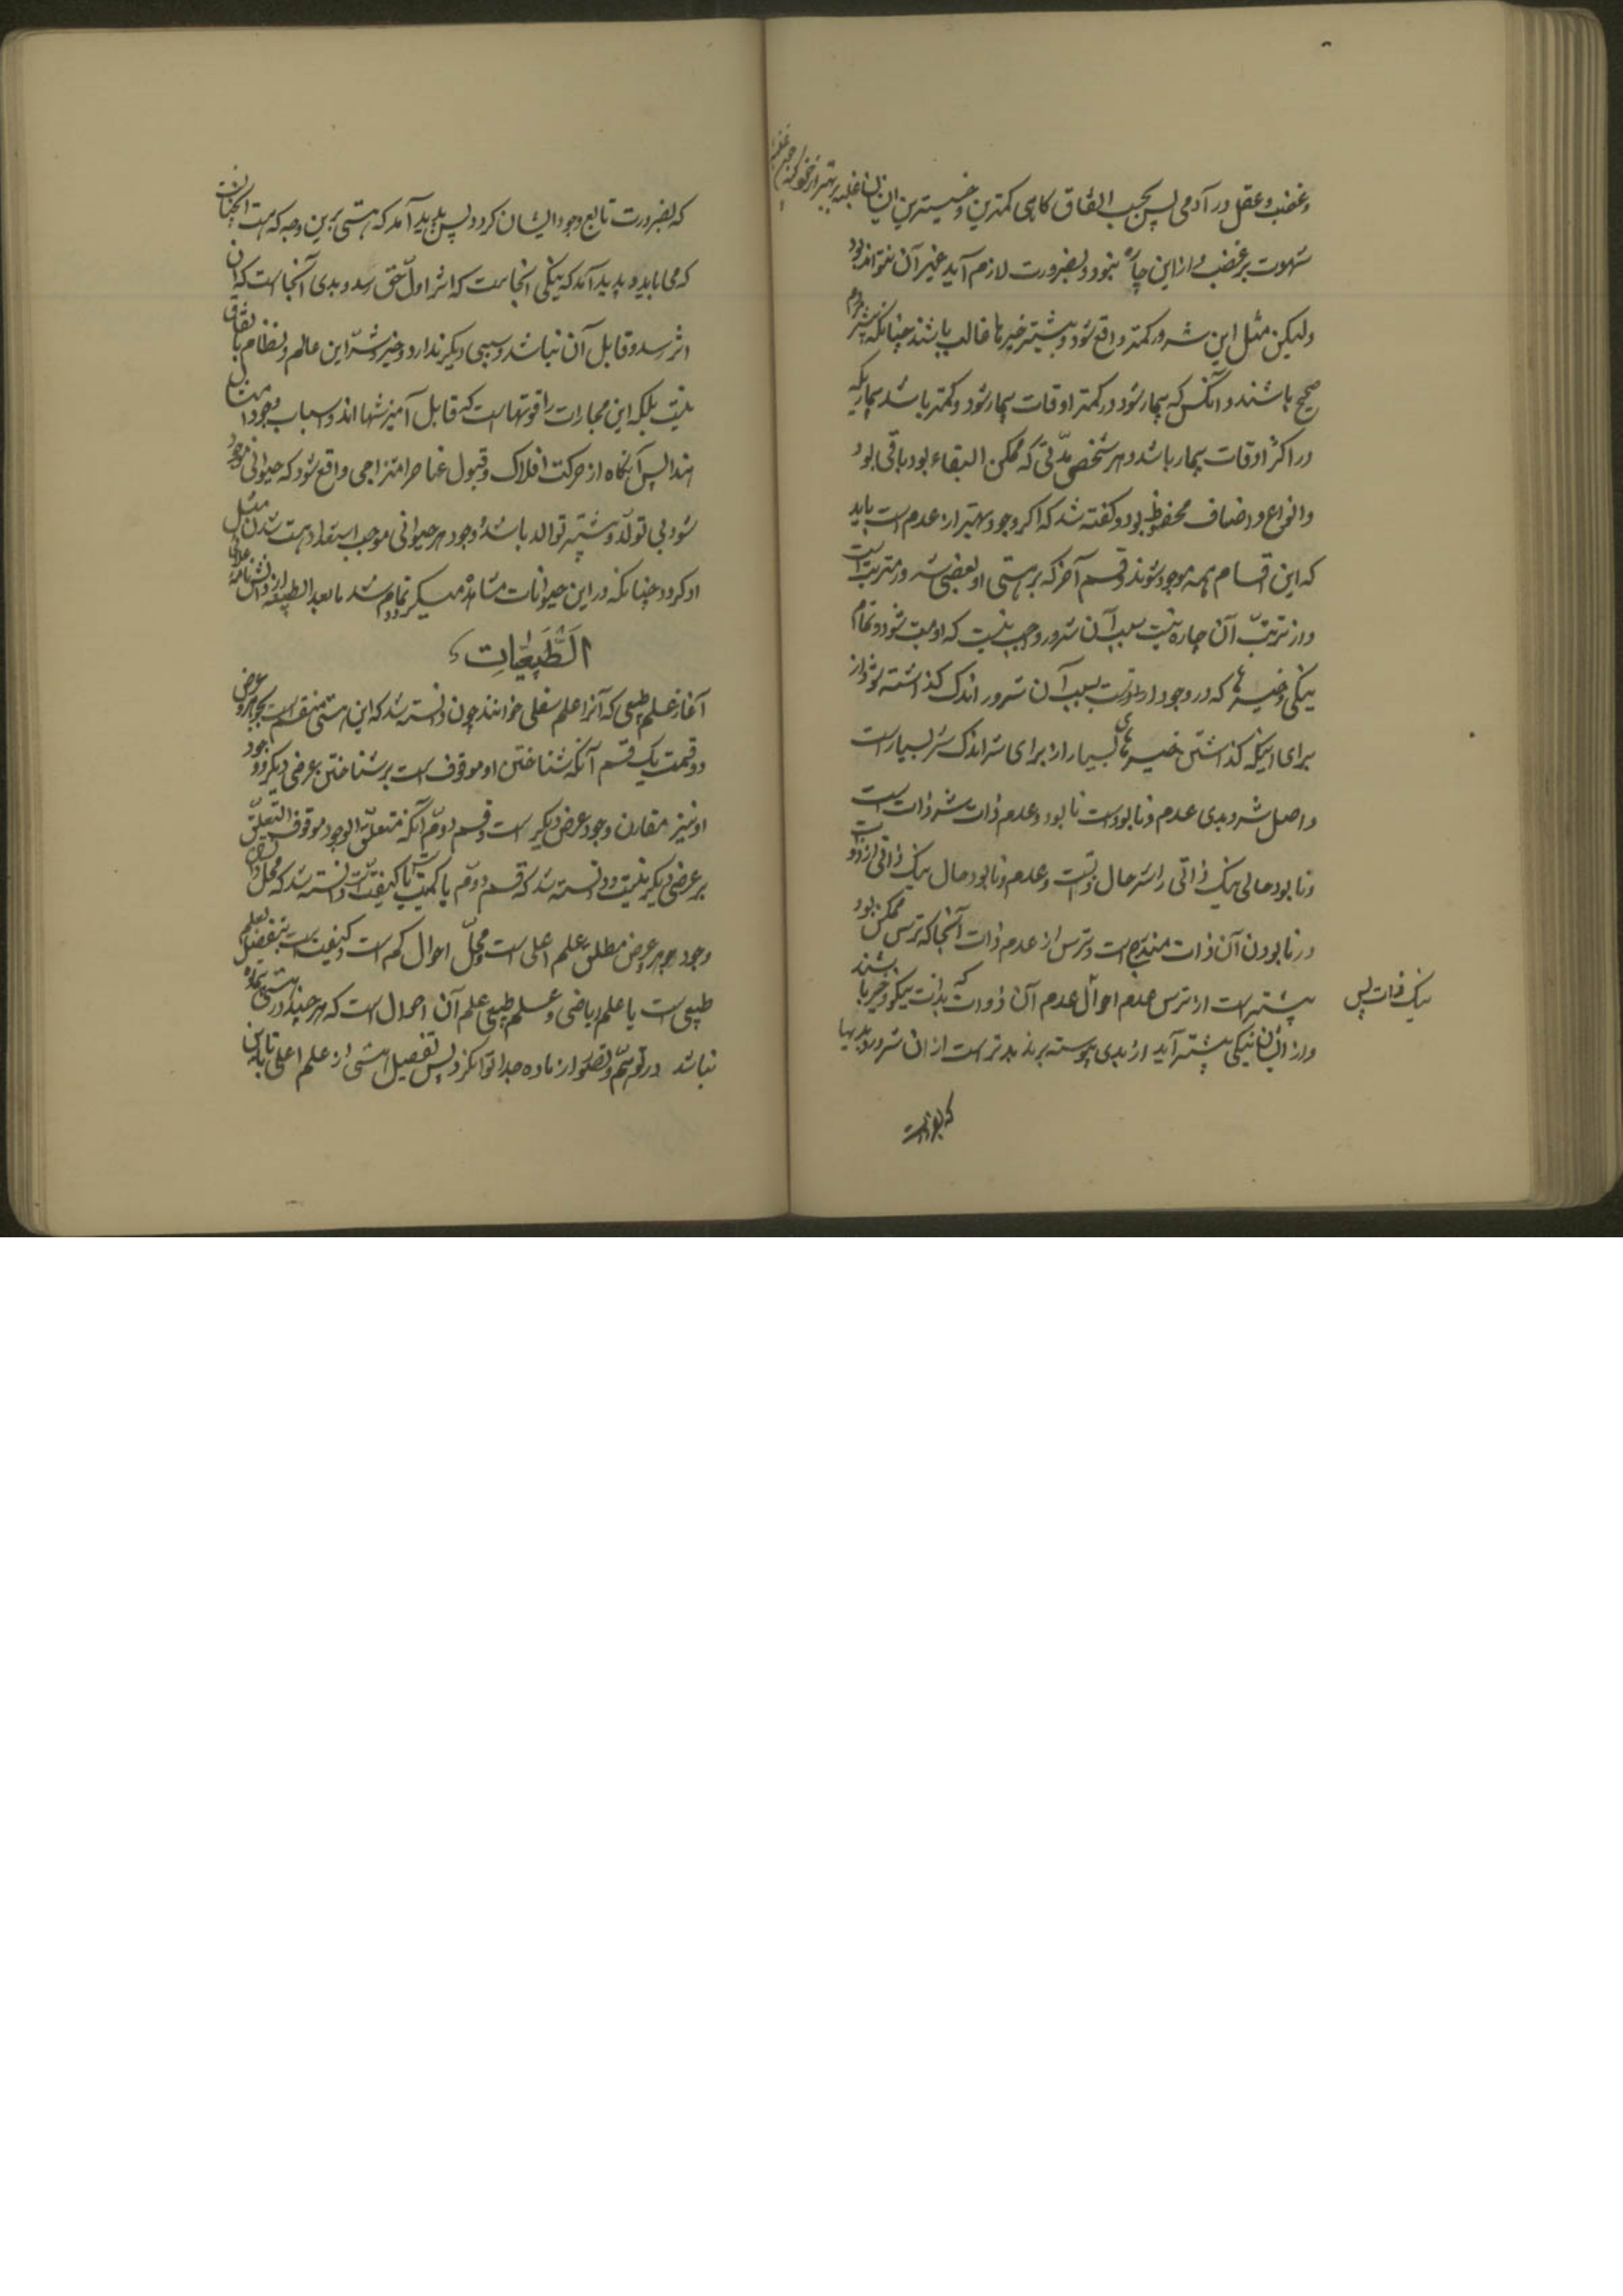 و غضب و عقل در آدمی پس بحسب اتفاق گاهی کمترین و خسیسترین ایشان غلبه
شهوت بر غضب و از این چاره نبود و بضرورت لازم آید غیر آن نتواند بود
ولیکن مثل این شرور کمتر واقع شود و بیشتر خیرها غالب باشند چنانکه بیشتر مردم
صحیح باشند و آنکس که بیمار شود در کمتر اوقات بیمار شود و کمتر باشد بیماریکه
در اکثر اوقات بیمار باشد و هر شخصی مدّتی که ممکن البقاء بود باقی بود
و انواع و اصناف محفوظ بود و گفته شد که اگر وجود بهتر از عدم است باید
که این اقسام همه موجود شوند و قسم آخر که بر هستی او بعضی شر مترتب است
و از ترتّب آن چاره نیست بسبب آن شرور واجب نیست که او نیست شود و تمام
نیکی و خیرها که در وجود او است بسبب آن شرور اندک گذاشته شود از
برای اینکه گذاشتن خیرهای بسیار از برای شر اندک شر بسیار است
و اصل شر و بدی عدم و نابود است نابود و عدم ذات شر ذات است
و نابود حالی نیک ذاتی را شر حال و نیست و عدم و نابود حال نیک ذاتی از او
در نابودن آن ذات مندرج است و ترس از عدم ذات آنجا که ترس ممکن بود
نیک ذات پس
بیشتر است از ترس عدم احوال عدم آن ذوات که بذات نیکو و خیر باشند
و از ایشان نیکی بیشتر آید از بدی پیوسته بر بد تر است از آن شرور و بدیها
که بضرورت
که بضرورت تابع وجود ایشان گردد پس پدید آمد که هستی برین وجه که هست آنچنان است
که می باید و پدید آمد که نیکی آنجاست که اثر اول حق رسد و بدی آنجا است که آن
اثر رسد و قابل آن نباشد و سببی دیگر ندارد و خیر و شرّ این عالم و نظام باتفاق
نیست بلکه این مجارات را قوتهاست که قابل آمیزشها اند و اسباب وجود
اند پس آنگاه از حرکت افلاک و قبول عناصر امتزاجی واقع شود که حیوانی موجود
شود بی تولّد و بیشتر توالد باشد وجود هر حیوانی موجب استعداد هست شدن مثل
او گردد چنانکه در این حیوانات مشاهده میگردد تمام شد مابعد الطبیعه از دانش نامهٔ علائی
الطَّبِیعِیّاتِ
آغاز علم طبیعی که آنرا علم سفلی خوانند چون دانسته شد که این هستی منقسم است بجوهر و عرض
دو قسمت یک قسم آنکه شناختن او موقوف است بر شناختن عرضی دیگر و وجود
او نیز مقارن وجود عرض دیگر است و قسم دوّم آنکه متعلّق الوجود موقوف التعلّق
بر عرضی دیگر نیست و دانسته شد که قسم دوّم یا کمیّت است یا کیفیّت و دانسته شد که محلّ اعراض
وجود جوهر و عرض مطلق علم اعلی است و محلّ احوال کم است و کیفیت است بتفصیل علم
طبیعی است یا علم ریاضی و علم طبیعی علم آن احوال است که هر چند در هستی بی ماده
نباشد در توهّم و تصوّر از ماده جدا توان کرد پس تفصیل هستی از علم اعلی